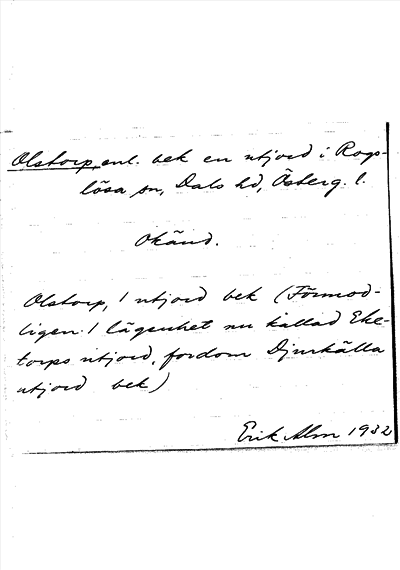 Olstorp, enl. bek en utjord i Rogs-
lösa sn, Dals hd, Österg. l.
Okänd.
Olstorp, 1 utjord bek (Förmod-
ligen 1 lägenhet nu kallad Eke-
torps utjord, fordom Djurkälla
utjord bek)
Erik Alm 1932